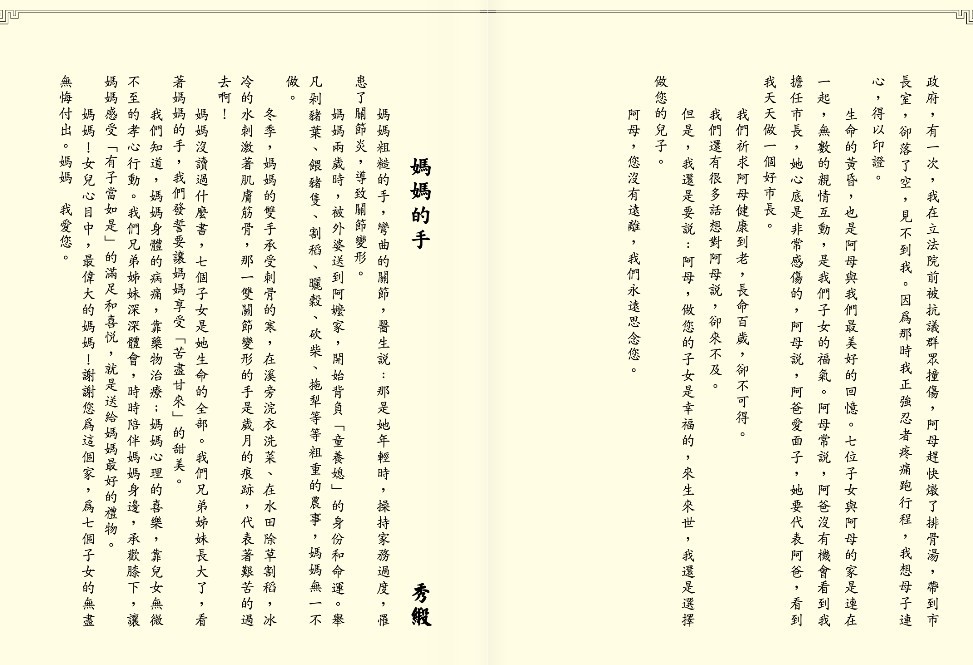 政府，有一次，我在立法院前被抗議群眾撞傷，阿母趕快燉了排骨湯，帶到市
長室，卻落了空，見不到我。因為那時我正強忍者疼痛跑行程，我想母子連
心，得以印證。
生命的黃昏，也是阿母與我們最美好的回憶。七位子女與阿母的家是連在
一起，無數的親情互動，是我們子女的福氣。阿母常說，阿爸沒有機會看到我
擔任市長，她心底是非常感傷的，阿母說，阿爸愛面子，她要代表阿爸，看到
我天天做一個好市長。
我們祈求阿母健康到老，長命百歲，卻不可得。
我們還有很多話想對阿母說，卻來不及。
但是，我還是要說：阿母，做您的子女是幸福的，來生來世，我還是選擇
做您的兒子。
阿母，您沒有遠離，我們永遠思念您。
媽媽的手 秀緞
媽媽粗糙的手，彎曲的關節，醫生說：那是她年輕時，操持家務過度，罹
患了關節炎，導致關節變形。
媽媽兩歲時，被外婆送到阿嬤家，開始背負「童養媳」的身份和命運。舉
凡剁豬菜、餵豬隻、割稻、曬穀、砍柴、拖犁等等粗重的農事，媽媽無一不
做。
冬季，媽媽的雙手承受刺骨的寒，在溪旁浣衣洗菜、在水田除草割稻，冰
冷的水刺激著肌膚筋骨，那一雙關節變形的手是歲月的痕跡，代表著艱苦的過
去啊！
媽媽沒讀過什麼書，七個子女是她生命的全部。我們兄弟姊妹長大了，看
著媽媽的手，我們發誓要讓媽媽享受「苦盡甘來」的甜美。
我們知道，媽媽身體的病痛，靠藥物治療；媽媽心理的喜樂，靠兒女無微
不至的孝心行動。我們兄弟姊妹深深體會，時時陪伴媽媽身邊，承歡膝下，讓
媽媽感受「有子當如是」的滿足和喜悅，就是送給媽媽最好的禮物。
媽媽！女兒心目中，最偉大的媽媽！謝謝您為這個家，為七個子女的無盡
無悔付出。媽媽 我愛您。